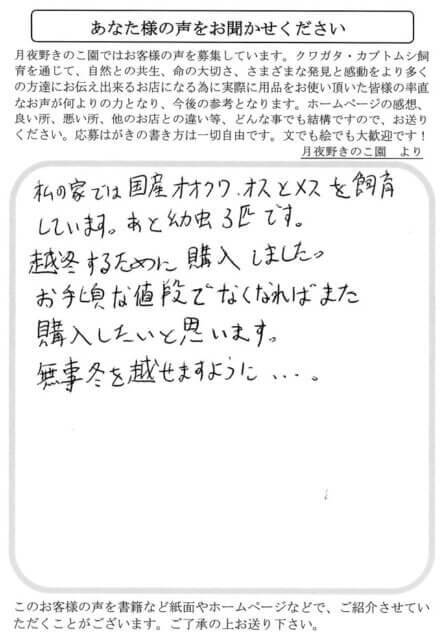 あなた様の声をお聞かせください
月夜野きのこ園ではお客様の声を募集しています。クワガタ・カブトムシ飼
育を通じて、自然との共生、命の大切さ、さまざまな発見と感動をより多く
の方達にお伝え出来るお店になる為に実際に用品をお使い頂いた皆様の率直
なお声が何よりの力となり、今後の参考となります。ホームページの感想、
良い所、悪い所、他のお店との違い等、どんな事でも結構ですので、お送り
ください。応募はがきの書き方は一切自由です。文でも絵でも大歓迎です！
月夜野きのこ園　より
私の家では国産オオクワ.オスとメスを飼育
しています。あと幼虫3匹です。
越冬するために購入しました。
お手頃な値段でなくなればまた
購入したいと思います。
無事冬を越せますように・・・。
このお客様の声を書籍など紙面やホームページなどで、ご紹介させてい
ただくことがございます。ご了承の上お送り下さい。